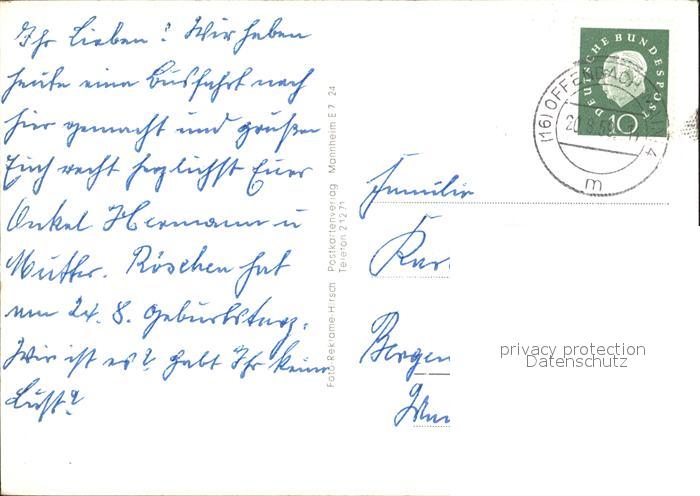 Ihr Lieben! Wir haben
heute eine Busfahrt nach
hier gemacht und grüßen
Euch recht herzlichst Euer
Onkel Hermann u
Mutter. Röschen hat
am 24. 8. Geburtstag.
Wir ist es? habt Ihr keine
Lust?
Foto-Reklame-Hirsch Postkartenverlag Mannheim E 7, 24
Telefon 21271
DEUTSCHE BUNDESPOST
10
(16) OFFENBACH
m
Familie
Bergen
privacy protection
Datenschutz